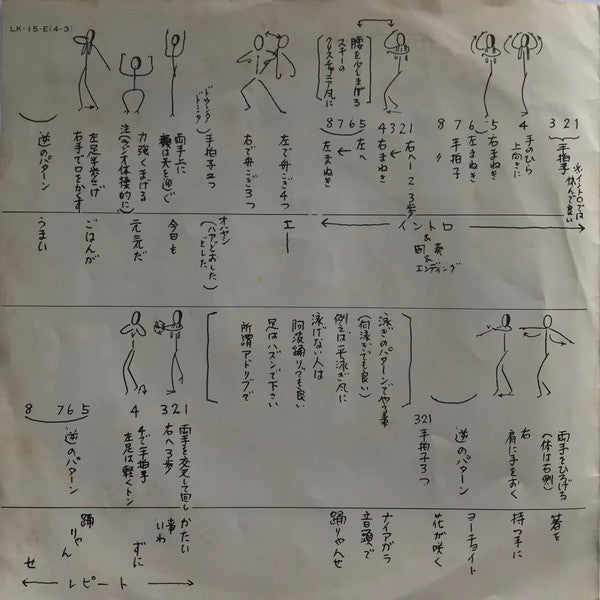 LK-15-E(4-3)
※イントロでは
休んで良い
3 2 1
手拍子
4
手のひら
上向きに
5
右まねき
6
左まねき
7
手拍子
8
〃
腰を少しまげる
スキーの
クリスチャニア風に
3 2 1
右へ1 2 3歩
4
右まねき
7 6 5
左へ
8
左まねき
左で舟こぎ4つ
右で舟こぎ3つ
手拍子2つ
両手上に
顔は天を迎ぐ
力強くまげる
注(ラジオ体操的に)
左足半歩にげ
右手で口をかくす
逆のパターン
イントロ
&
間奏
&
エンディング
エー
オハヤシ
(ハアどおした
どした)
今日も
元気だ
ごはんが
うまい
両手をひろげる
(体は右側)
右
肩に手をおく
逆のパターン
3 2 1
手拍子3つ
泳ぎのパターンでやる事
(何泳ぎでも良い)
例えば平泳ぎ風に
泳げない人は
阿波踊りでも良い
足はハズンで下さい
所謂アドリブで
3 2 1
両手を交互して回し
右へ3歩
4
4で手拍子
左足は軽くトン
7 6 5
逆のパターン
8
箸を
持つ手に
ヨーチョイト
花が咲く
ナイアガラ
音頭で
踊りゃんせ
かたい
事いわ
ずに
踊
りゃん
せ
レピート